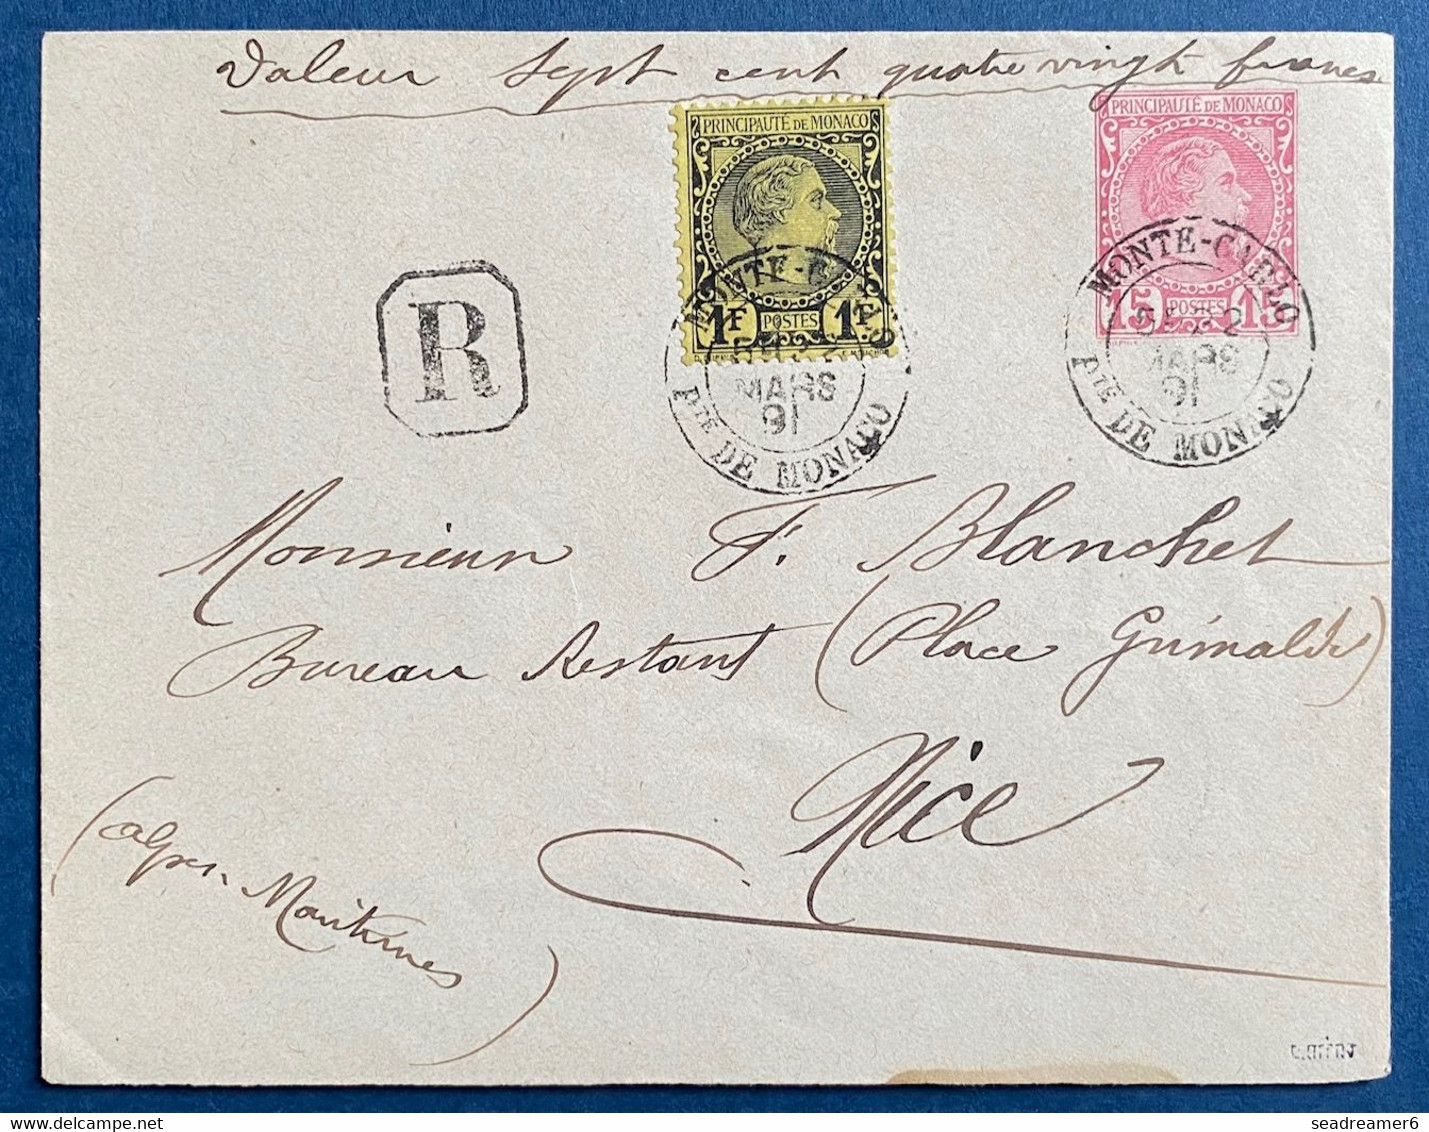 Valeur Sept cent quatre vingt francs
PRINCIPAUTÉ DE MONACO
1F POSTES 1F
PRINCIPAUTÉ DE MONACO
15 POSTES 15
MONTE-CARLO
MARS
91
PTE DE MONACO
MONTE-CARLO
MARS
91
PTE DE MONACO
R
Monsieur F. Blanchet
Bureau Restant (Place Grimaldi)
Nice
(Alpes-Maritimes)
seadreamer6 delcampe.net